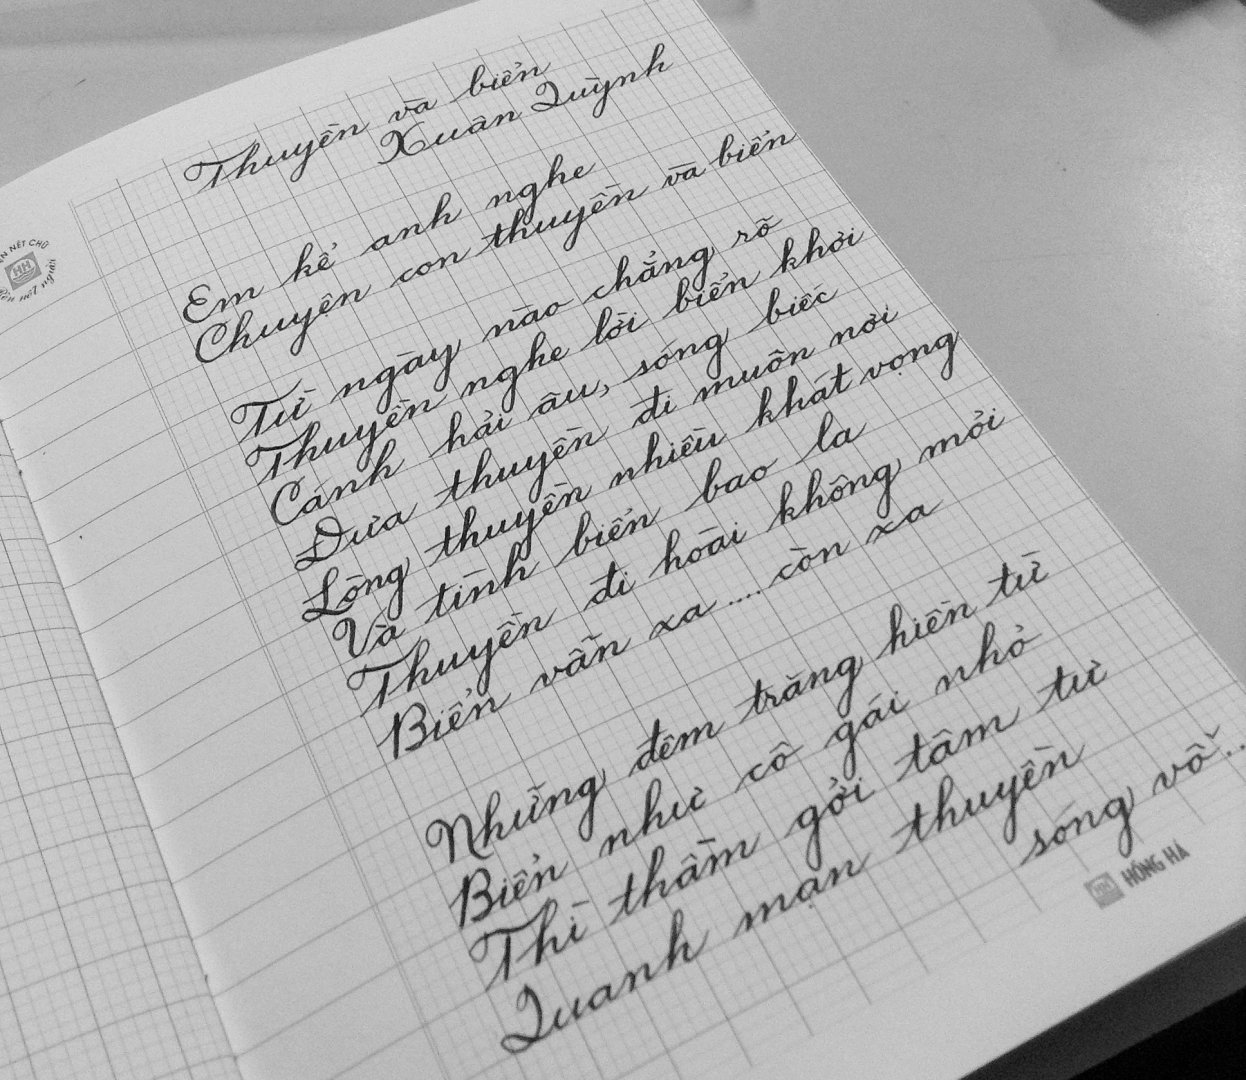 Thuyền và biển
Xuân Quỳnh
Em kể anh nghe
Chuyện con thuyền và biển
Từ ngày nào chẳng rõ
Thuyền nghe lời biển khơi
Cánh hải âu, sóng biếc
Đưa thuyền đi muôn nơi
Lòng thuyền nhiều khát vọng
Và tình biển bao la
Thuyền đi hoài không mỏi
Biển vẫn xa .... còn xa
Những đêm trăng hiền từ
Biển như cô gái nhỏ
Thì thầm gởi tâm tư
Quanh mạn thuyền
sóng vỗ...
NÉT CHỮ
HH
nết người
HỒNG HÀ